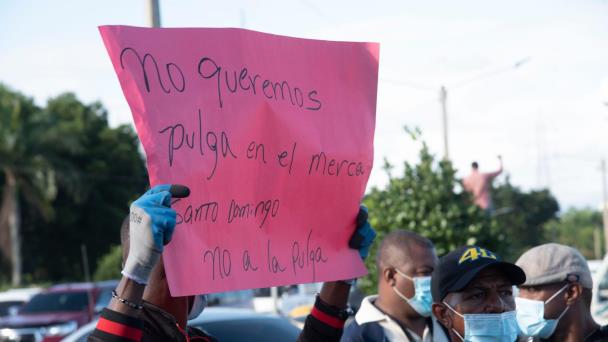 no queremos
pulga en el merca
santo Domingo
no a la pulga
40